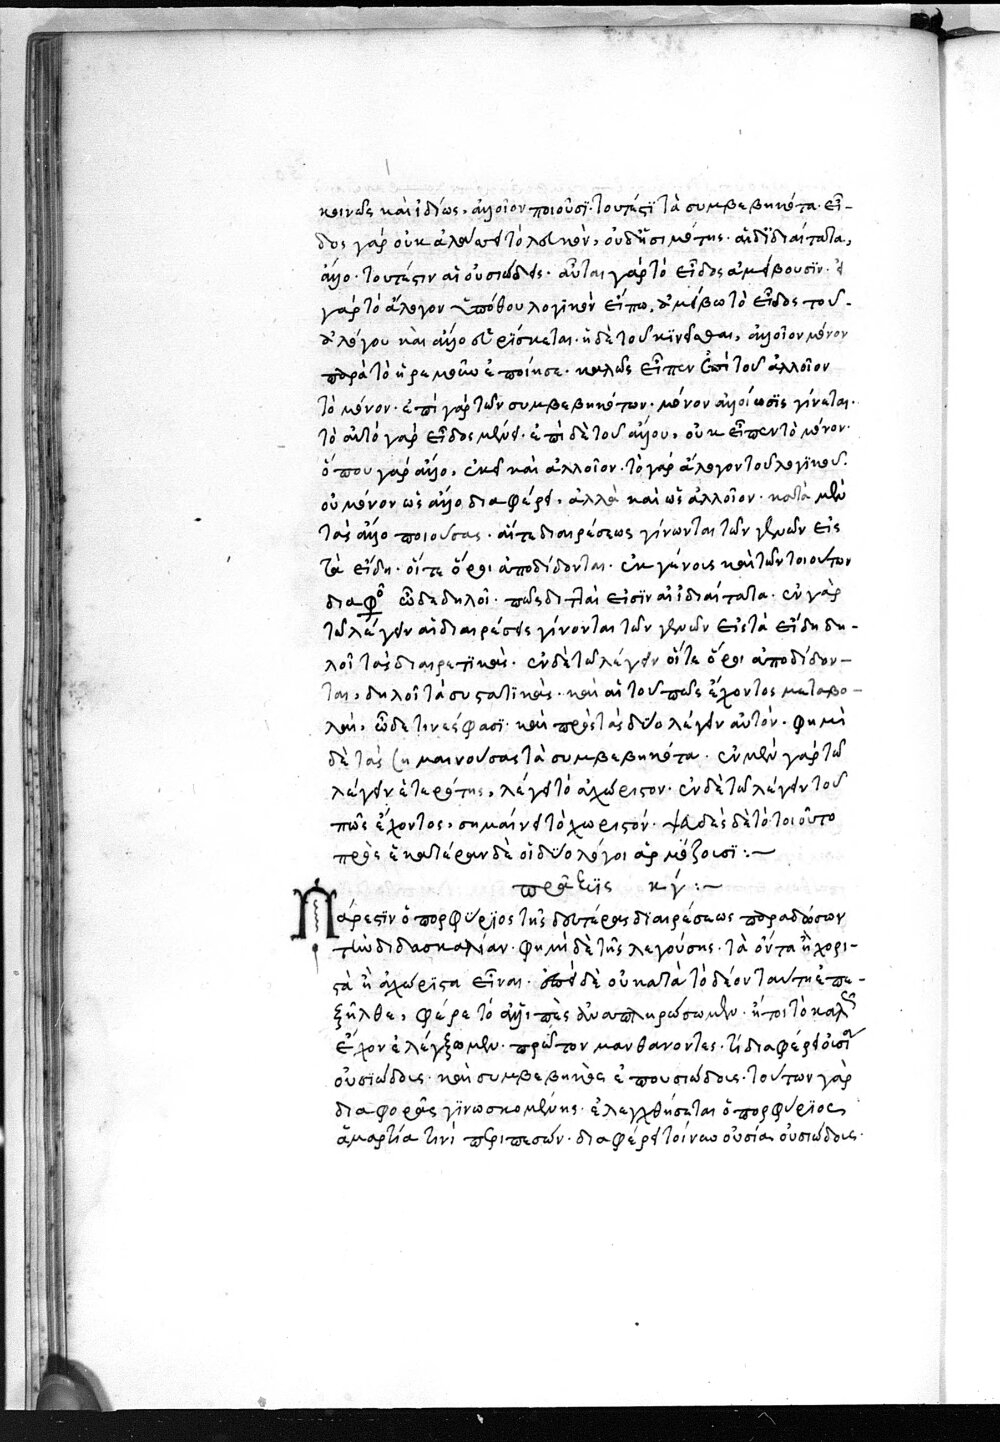 κοινῶς καὶ ἰδίως, ἀλλοῖον ποιοῦσι· τουτέστι τὰ συμβεβηκότα· εἶ-
δος γὰρ οὐκ ἀλλάττει τὸ λευκὸν, οὐδὲ ἡ σιμότης· αἱ δὲ ἰδιαίτατα,
ἄλλο· τουτέστιν αἱ οὐσιώδεις· αὗται γὰρ τὸ εἶδος ἀμείβουσιν· εἰ
γὰρ τὸ ἄλογον ὑπόθου λογικὸν εἴπω, ἀμείβω τὸ εἶδος τοῦ
ἀλόγου καὶ ἄλλο εὑρίσκεται· ἡ δὲ τοῦ κινεῖσθαι, ἀλλοῖον μόνον
παρὰ τὸ ἠρεμοῦν ἐποίησε· καλῶς εἶπεν ἐπὶ τοῦ ἀλλοῖον
τὸ μόνον· ἐπὶ γὰρ τῶν συμβεβηκότων· μόνον ἀλλοίωσις γίνεται·
τὸ αὐτὸ γὰρ εἶδος μένει· ἐπὶ δὲ τοῦ ἄλλου, οὐκ εἶπεν τὸ μόνον·
ὅπου γὰρ ἄλλο, ἐκεῖ καὶ ἀλλοῖον· τὸ γὰρ ἄλογον τοῦ λογικοῦ·
οὐ μόνον ὡς ἄλλο διαφέρει, ἀλλὰ καὶ ὡς ἀλλοῖον· κατὰ μὲν
τὰς ἄλλο ποιούσας· αἵ τε διαιρέσεως γίνωνται τῶν γενῶν εἰς
τὰ εἴδη· οἵ τε ὅροι ἀποδίδονται· ἐκ γένους καὶ τῶν τοιούτων
διαφο ὧδε δηλοῖ· πῶς διτταί εἰσιν αἱ ἰδιαίτατα· ἐν γὰρ
τῶ λέγειν αἱ διαιρέσεις γίνονται τῶν γενῶν εἰς τὰ εἴδη δη-
λοῖ τὰς διαιρετικάς· ἐν δὲ τῶ λέγειν οἵ τε ὅροι ἀποδίδον-
ται, δηλοῖ τὰ συστατικάς· καὶ αἱ τοῦ πῶς ἔχοντος μεταβο-
λαὶ, ὧδε τινες φασὶ· καὶ πρὸς τὰς δύο λέγειν αὐτόν· φημὶ
δὲ τὰς σημαινούσας τὰ συμβεβηκότα· ἐν μὲν γὰρ τῶ
λέγειν ἑτερότης, λέγει τὸ ἀχώριστον· ἐν δὲ τῶ λέγειν τοῦ
πῶς ἔχοντος, σημαίνει τὸ χωριστόν· ψευδὲς δὲ τὸ τοιοῦτο
πρὸς ἑκατέραν δὲ οἱ δύο λόγοι ἁρμόζουσι:~
πρᾶξις κγ:~
Πάρεστιν ὁ πορφύριος τῆς δευτέρας διαιρέσεως παραδώσων
τὴν διδασκαλίαν· φημὶ δὲ τῆς λεγούσης· τὰ ὄντα ἢ χορι-
στὰ ἢ ἀχώριστα εἶναι· ἐπεὶ δὲ οὐ κατὰ τὸ δέον ταύτη ἐπε-
ξῆλθε, φέρε τὸ ἀλλιπὲς ἀναπληρώσωμεν· ἤτοι τὸ καλῶς
ἔχον ἐλέγξωμεν· πρῶτον μανθάνοντες· τί διαφέρει οὐσία
οὐσιώδους· καὶ συμβεβηκὸς ἐπουσιώδους· τούτων γὰρ
διαφορᾶς γινωσκομένης· ἐλεγχθήσεται ὁ πορφύριος
ἁμαρτία τινὶ περιπεσών· διαφέρει τοίνυν οὐσία οὐσιώδους·